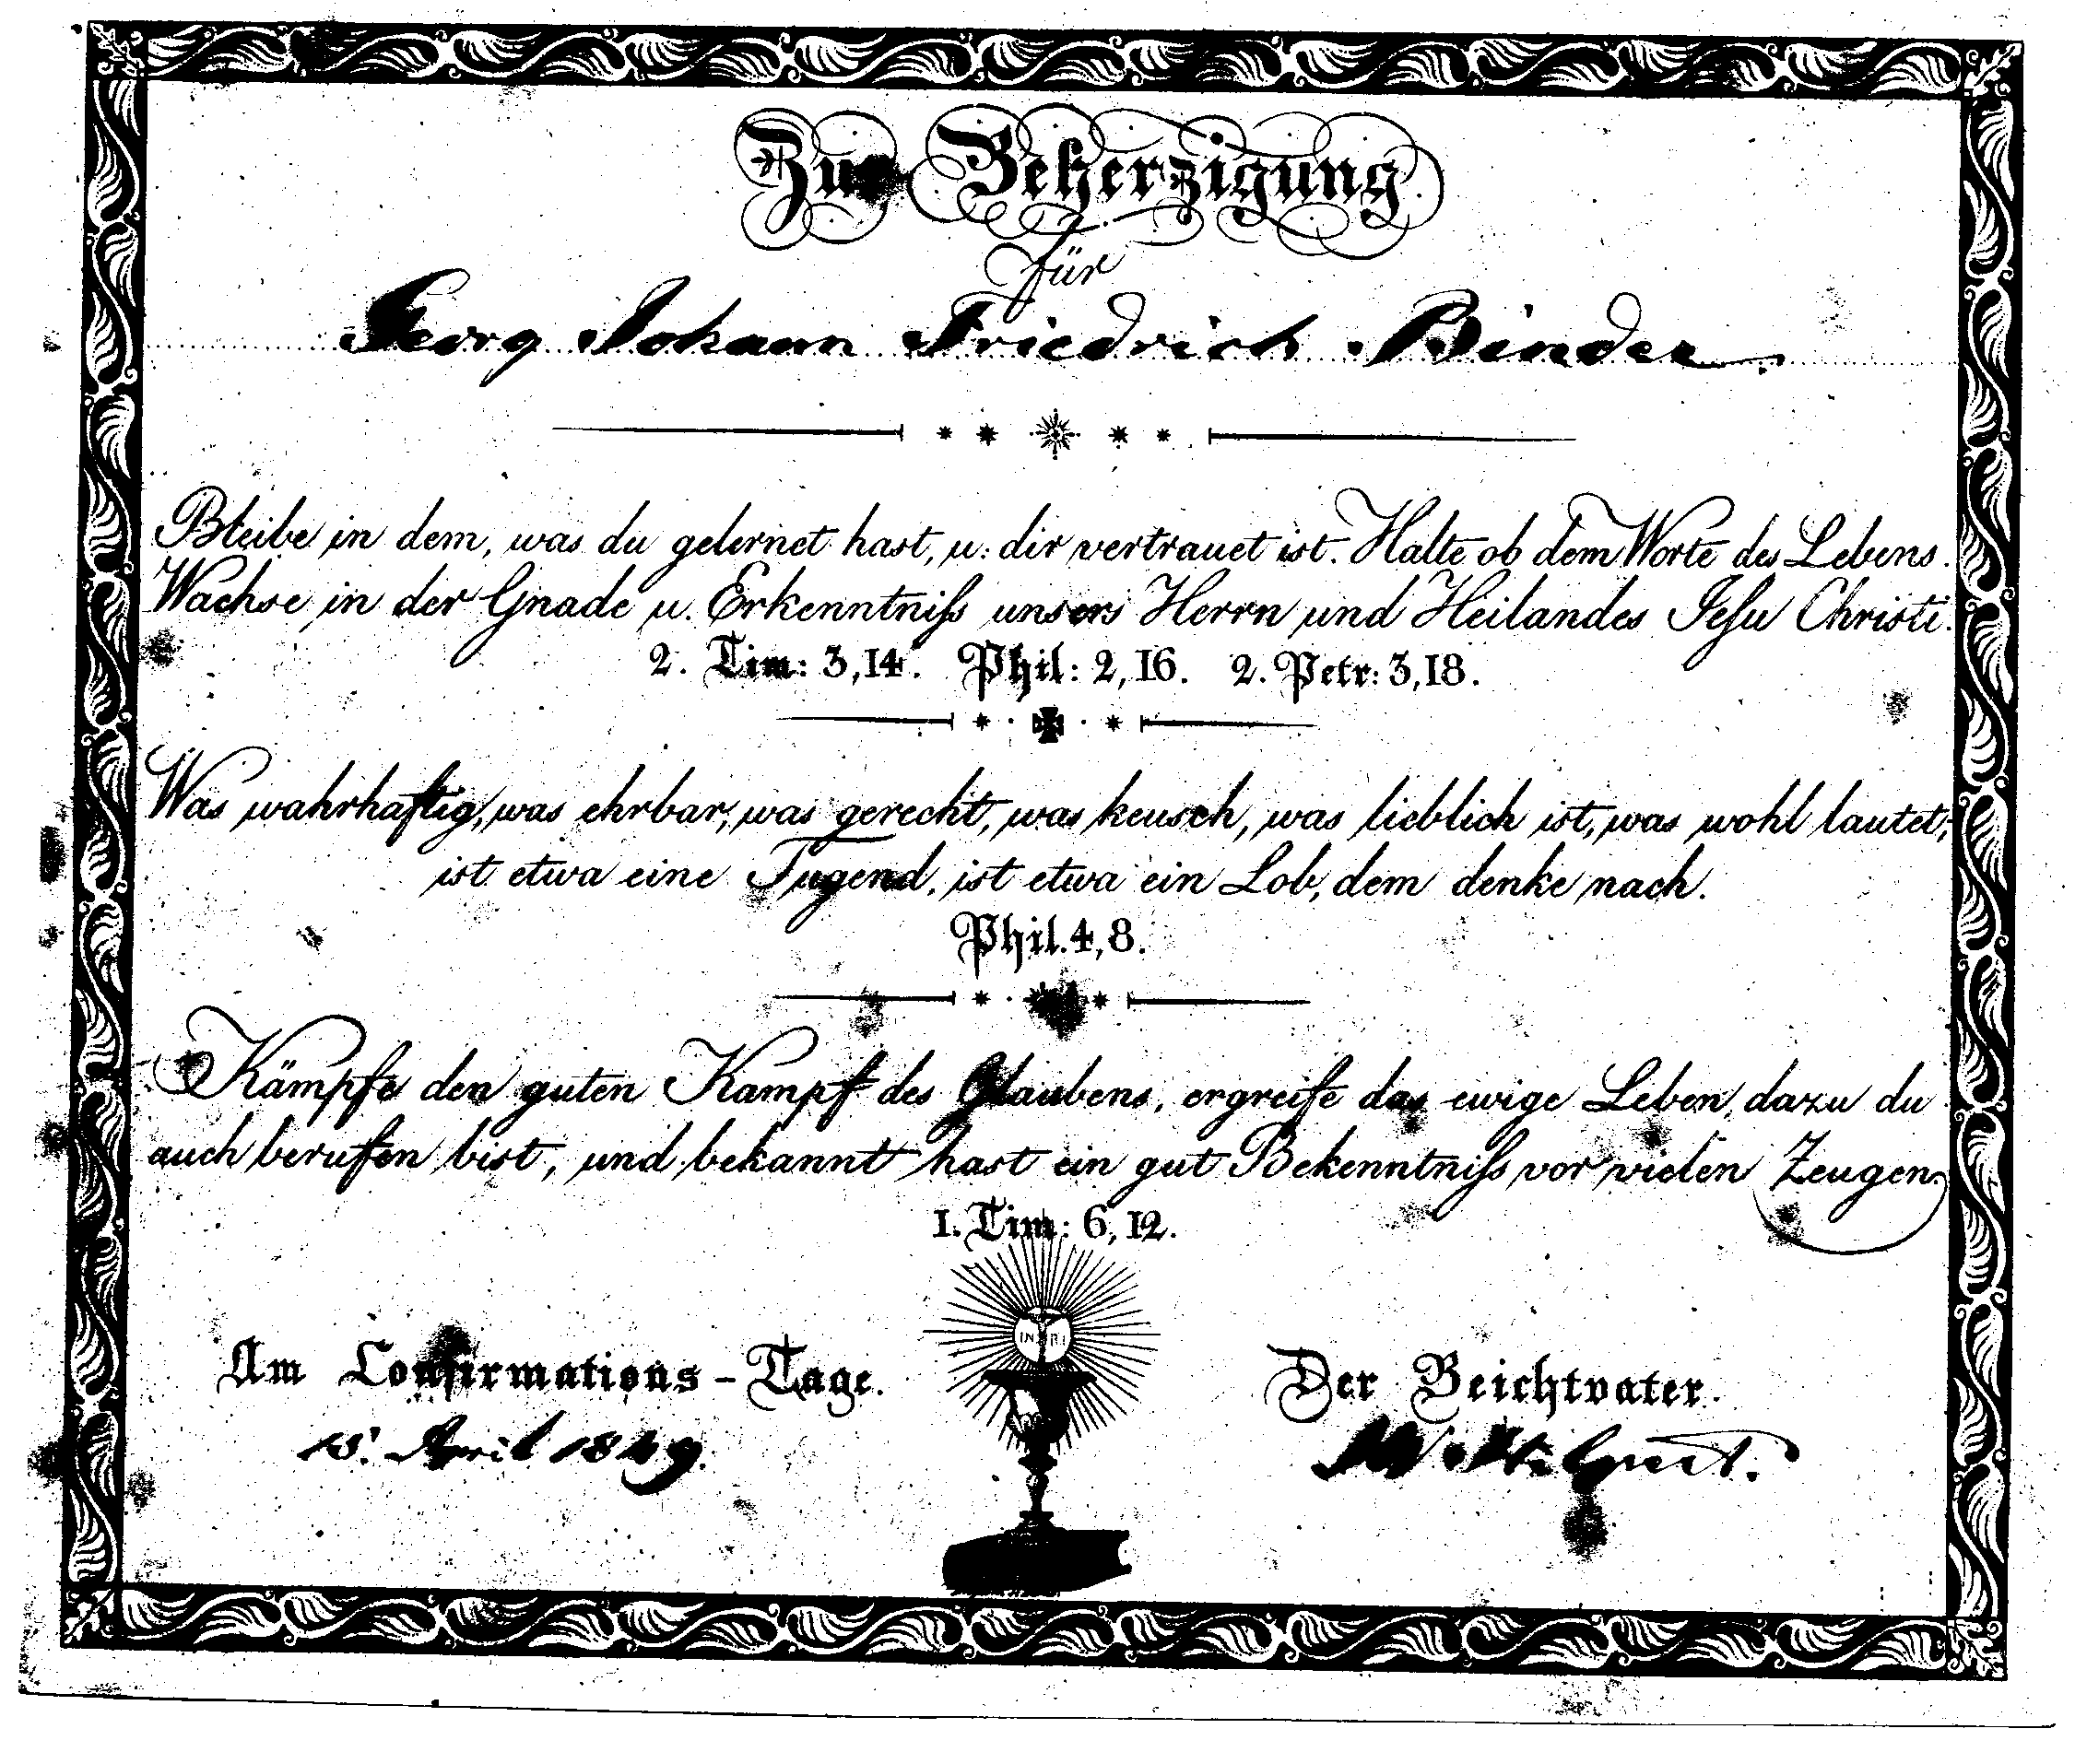 Zur Beherzigung
für
Georg Johann Friedrich Binder.
Bleibe in dem, was du gelernet hast, u. dir vertrauet ist. Halte ob dem Worte des Lebens.
Wachse in der Gnade u. Erkenntniß unsers Herrn und Heilandes Jesu Christi.
2. Tim: 3,14. Phil: 2,16. 2. Petr: 3,18.
Was wahrhaftig, was ehrbar, was gerecht, was keusch, was lieblich ist, was wohl lautet,
ist etwa eine Tugend, ist etwa ein Lob, dem denke nach.
Phil. 4,8.
Kämpfe den guten Kampf des Glaubens, ergreife das ewige Leben, dazu du
auch berufen bist, und bekannt hast ein gut Bekenntniß vor vielen Zeugen.
1. Tim: 6,12.
INRI
Am Confirmations-Tage.
Der Beichtvater.
15. April 1849.